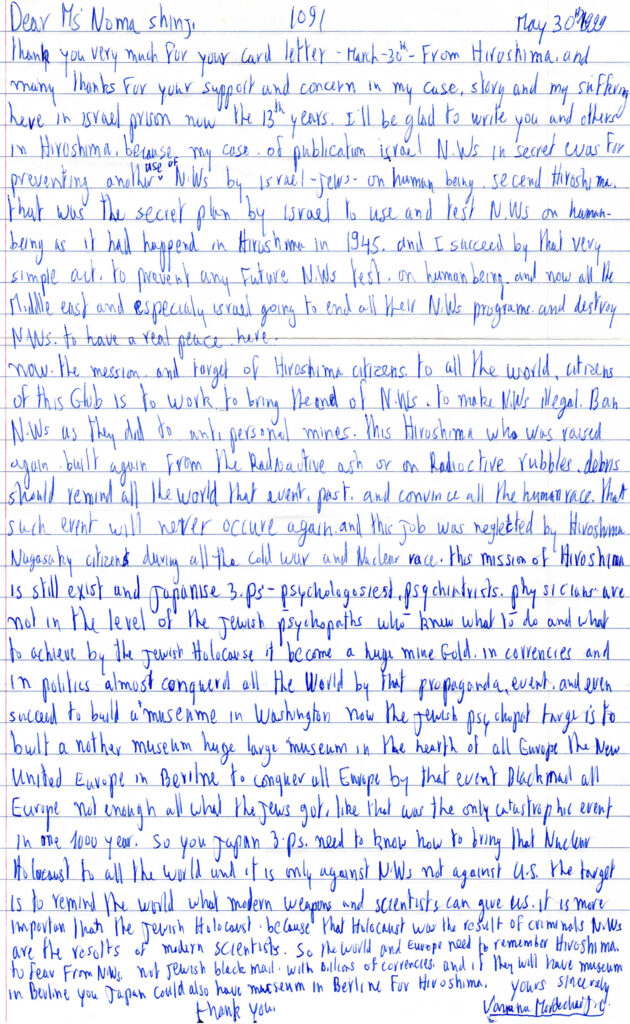 Dear Ms Noma shinj. 1091 May 30th 1999
Thank you very much for your card letter - March-30th - From Hiroshima, and
many thanks for your support and concern in my case, story and my suffering
here in israel prison now the 13th years. I'll be glad to write you and others
in Hiroshima. because my case of publication israel N.Ws in secret was for
preventing another use of N.Ws by israel-jews- on human being. secend Hiroshima.
that was the secret plan by israel to use and test N.Ws on human-
being as it had happend in Hiroshima in 1945. and I succeed by that very
simple act. to prevent any Future N.Ws test. on human being. and now all the
Middle east and especialy israel going to end all their N.Ws programs. and destroy
N.Ws. to have a real peace here.
now. the mession. and target of Hiroshima citizens. to all the world, citizens
of this Glob is to work to bring the end of N.Ws. to make N.Ws illegal. Ban
N.Ws as they did to anti personal mines. this Hiroshima who was raised
again. built again From the Radioactive ash or on Radioctive rubbles. debris
should remind all the world that event, past. and convince all the human race. that
such event will never occure again. and this job was neglected by Hiroshima
Nagasaky citizens during all the cold war and Nuclear race. this mission of Hiroshima
is still exist and Japanise 3.ps- psychologosiest, psychiatrists. physicians are
not in the level of the Jewish psychopaths who knew what to do and what
to achieve by the Jewish Holocause it become a huge mine Gold. in correncies and
in politics almost conquerd all the World by that propaganda, event. and even
succeed to build a musenme in Washington now the Jewish psychopat targe is to
built a nother museum huge large museum in the hearth of all Europe the New
United Europe in Berline to conquer all Europe by that event Blackmail all
Europe not enough all what the Jews got, like that was the only catastrophic event
in one 1000 year. So you Japan 3.ps. need to know how to bring that Nuclear
Holocaust to all the world and it is only against N.Ws not against U.S. the target
is to remind the world what modern weapons and scientists can give us. it is more
importan thats the Jewish Holocaust. because that Holocaust was the result of criminals N.Ws
are the results of modern scientists. So the world and Europe need to remember Hiroshima.
to fear From N.Ws. not Jewish black mail. with billions of correncies. and if they will have museum
in Berline you Japan could also have musseum in Berline For Hiroshima. yours sincerely
thank you. Vanunu Mordechai J.C